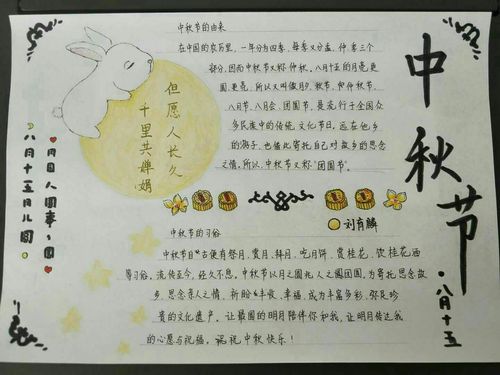 中秋节
八月十五
中秋节的由来
在中国的农历里，一年分为四季，每季又分孟、仲、季三个
部分，因而中秋节又称仲秋。八月十五的月亮更
圆，更亮，所以又叫做月夕，秋节，仲秋节，
八月节，八月会，团圆节，是流行于全国众
多民族中的传统文化节日。远在他乡
的游子，也借此寄托自己对故乡的思念
之情，所以，中秋节又称"团圆节"。
但愿人长久
千里共婵娟
八月十五月儿圆
刘有麟
中秋节的习俗
中秋节自古便有祭月，赏月，拜月，吃月饼，赏桂花，饮桂花酒
等习俗，流传至今，经久不息。中秋节以月之圆兆人之团圆，为寄托思念故
乡，思念亲人之情，祈盼丰收，幸福，成为丰富多彩，弥足珍
贵的文化遗产。让最圆的明月陪伴你和我，让明月传达我
的心愿与祝福。祝中秋快乐！